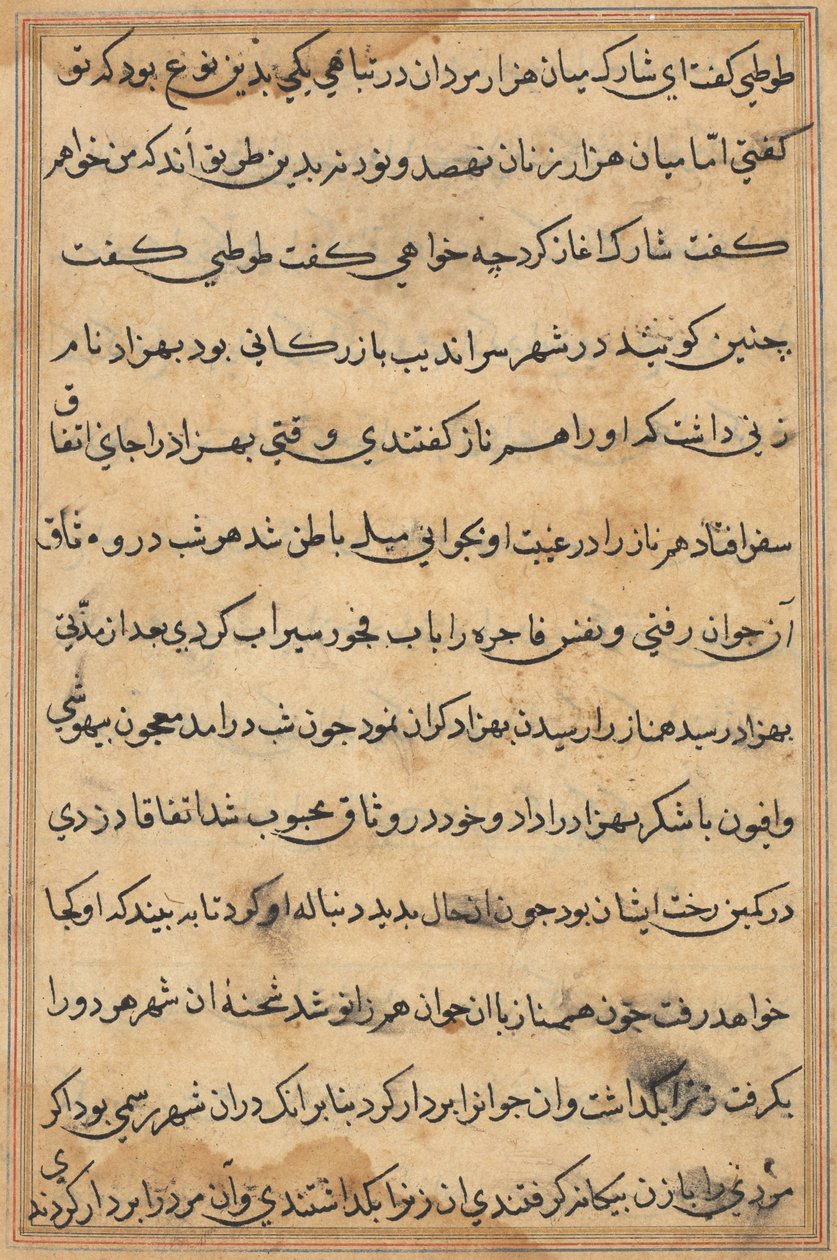 طوطي کفت اي شارک میان هزار مردان در تباهي یکي بدین نوع بود که تو
کفتي امّا میان هزار زنان نهصد و نود نه بدین طریق اند که من خواهم
کفت شارک اغاز کرد چه خواهي کفت طوطي کفت
چنین کویند در شهر سراندیب بازرکاني بود بهزاد نام
زني داشت که او را همناز کفتندي وقتي بهزاد را جایي اتفاق
سفر افتاد همناز را در غیبت او بجواني میل باطن شد هر شب در وثاق
آن جوان رفتي و نفس فاجره را باب فجور سیراب کردي بعد از مدّتي
بهزاد رسید همناز را رسیدن بهزاد کران نمود جون شب درامد معجون بیهوشي
و افیون با شکر بهزاد را داد و خود در وثاق محبوب شد اتفاقا دزدي
در کمین رخت ایشان بود جون ان حال بدید دنباله او کرد تا به بیند که او کجا
خواهد رفت جون همناز با ان جوان همزانو شد شحنهٔ ان شهر هر دو را
بکرفت زنرا بکداشت و ان جوانرا بردار کرد بنابر انک دران شهر رسمي بود اکر
مردي را با زن بیکانه کرفتندي ان زنرا بکداشتندي و آن مرد را بردار کردندي